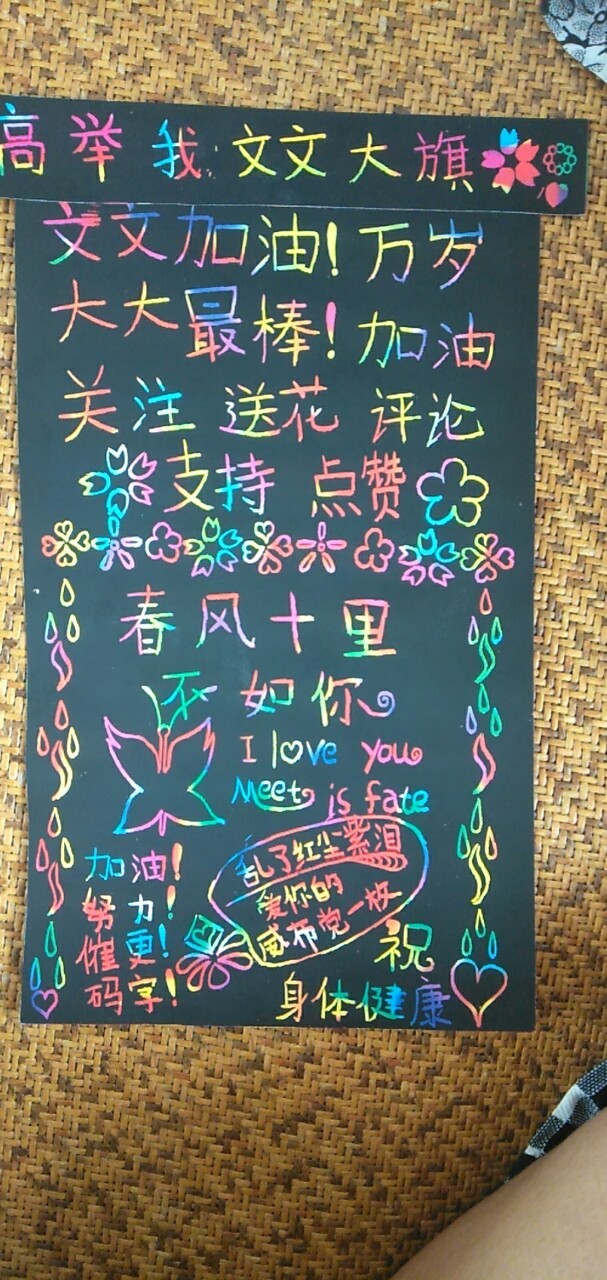 高举我文文大旗
文文加油！万岁
大大最棒！加油
关注 送花 评论
支持 点赞
春风十里
不如你
I love you
Meet is fate
加油！
努力！
催更！
码字！
乱了红尘紫泪
爱你的
威布党一枚
祝
身体健康